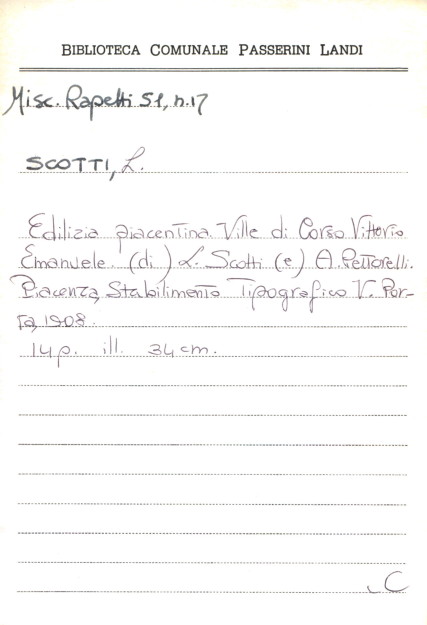 BIBLIOTECA COMUNALE PASSERINI LANDI
Misc. Rapetti 51, n.17
SCOTTI, L.
Edilizia piacentina. Ville di Corso Vittorio
Emanuele (di) L. Scotti (e) A. Pettorelli.
Piacenza, Stabilimento Tipografico V. Por-
ta, 1908.
14 p. ill. 34 cm.
C